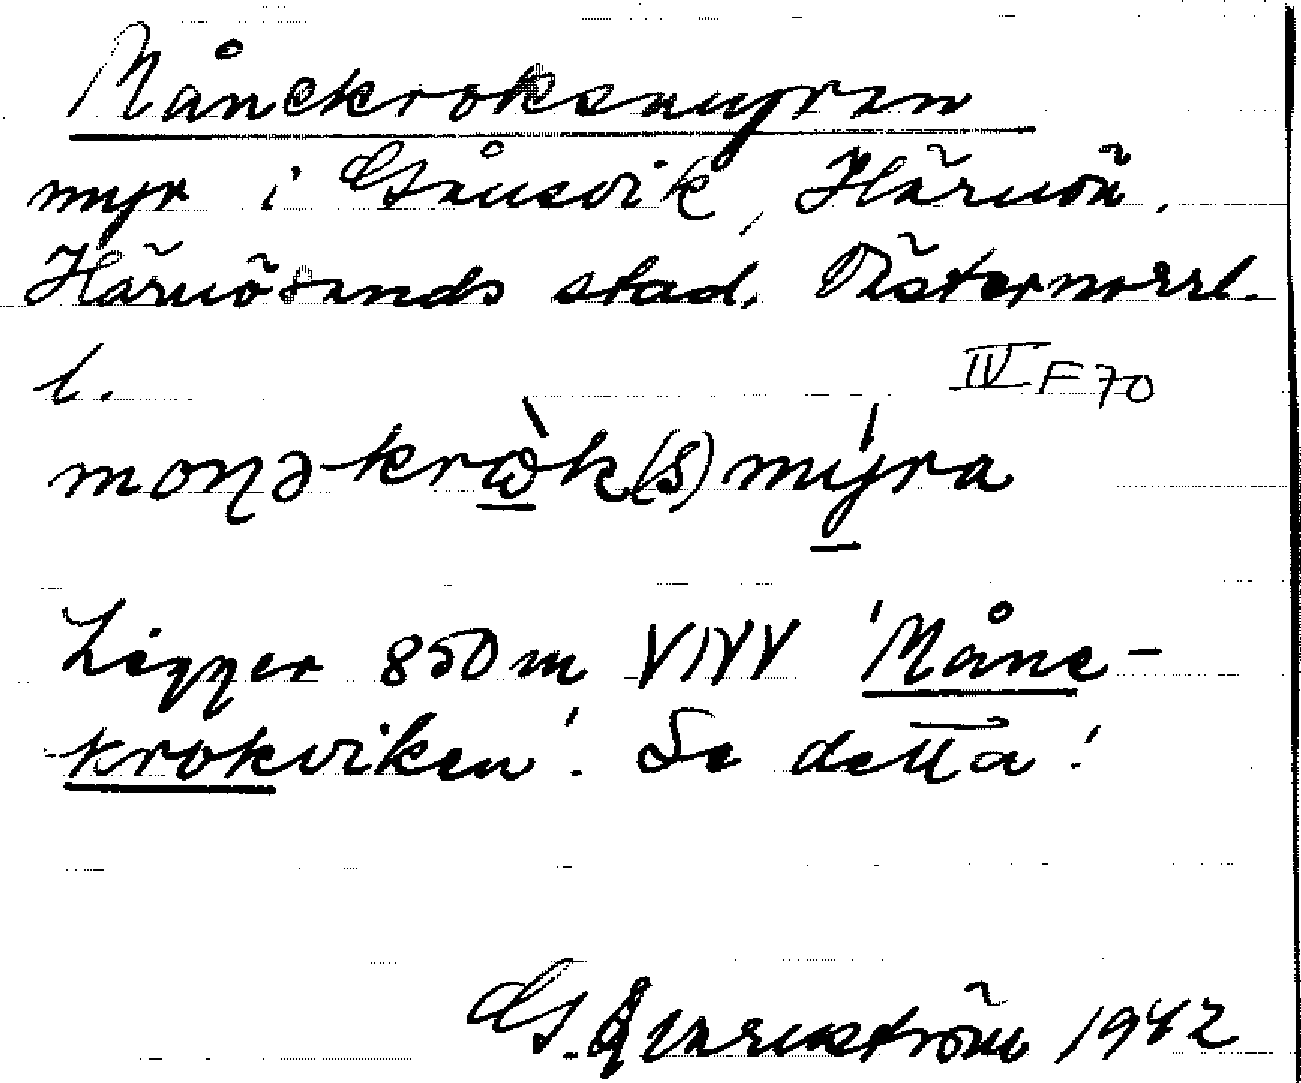 Månekroksmyran
myr i Gånsvik, Härnön,
Härnösands stad, Västernorrl.
l.
IV F 70
moŋə-krὼk(s)mýra
Ligger 850 m VNV 'Måne-
krokviken'. Se detta!
G. Quarnström 1942